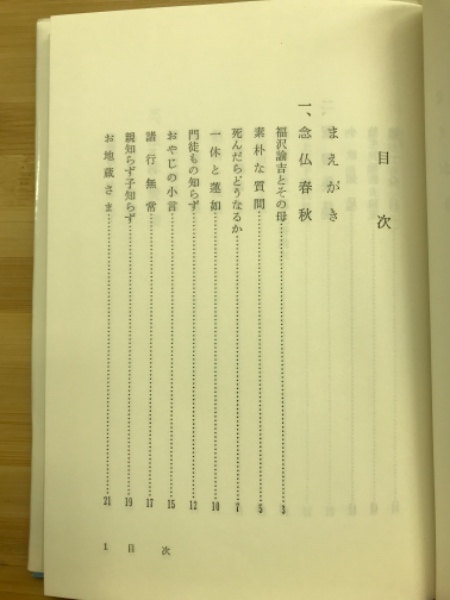 目次
まえがき
一、念仏春秋
福沢諭吉とその母…………3
素朴な質問…………5
死んだらどうなるか…………7
一休と蓮如…………10
門徒もの知らず…………12
おやじの小言…………15
諸行無常…………17
親知らず子知らず…………19
お地蔵さま…………21
1 目次